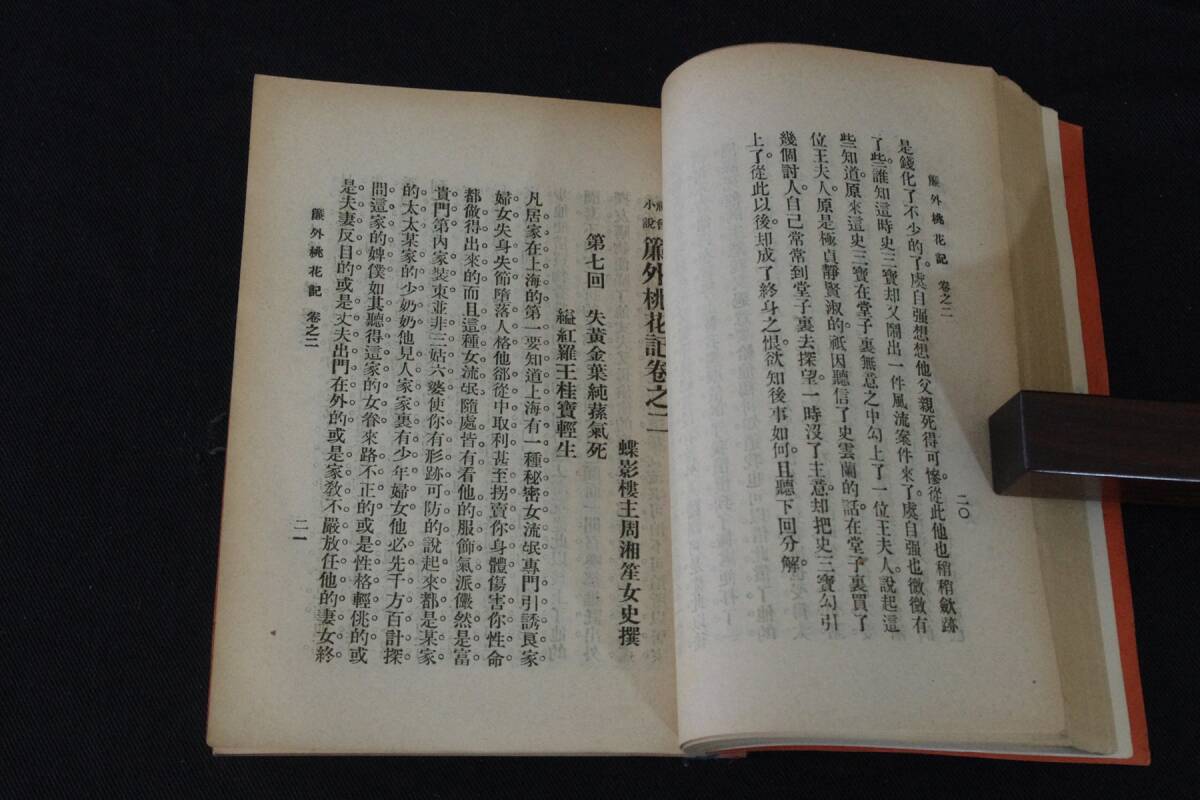 簾外桃花記　卷之二
二〇
是錢化了不少的了虞自强想想他父親死得可慘從此他也稍稍歛跡
了些誰知這時史三寶却又鬧出一件風流案件來了虞自强也微微有
些知道原來這史三寶在堂子裏無意之中勾上了一位王夫人說起這
位王夫人原是極貞靜賢淑的祇因聽信了史雲蘭的話在堂子裏買了
幾個討人自己常常到堂子裏去探望一時沒了主意却把史三寶勾引
上了從此以後却成了終身之恨欲知後事如何且聽下回分解
小說
簾外桃花記卷之二
蝶影樓主周湘笙女史撰
第七回　失黃金葉純蓀氣死
縊紅羅王桂寶輕生
凡居家在上海的第一要知道上海有一種秘密女流氓專門引誘良家
婦女失身失節墮落人格他郤從中取利甚至拐賣你身體傷害你性命
都做得出來的而且這種女流氓隨處皆有看他的服飾氣派儼然是富
貴門第內家裝束並非三姑六婆使你有形跡可防的說起來都是某家
的太太某家的少奶奶他見人家家裏有少年婦女他必先千方百計探
問這家的婢僕如其聽得這家的女眷來路不正的或是性格輕佻的或
是夫妻反目的或是丈夫出門在外的或是家敎不嚴放任他的妻女終
簾外桃花記　卷之二
二一